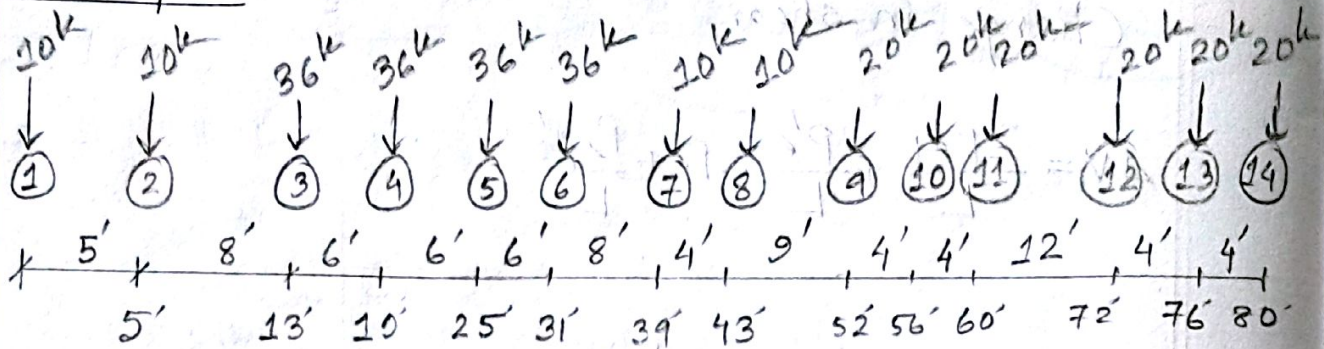 10k 10k 36k 36k 36k 36k 10k 10k 20k 20k 20k 20k 20k 20k
1 2 3 4 5 6 7 8 9 10 11 12 13 14
5' 8' 6' 6' 6' 8' 4' 9' 4' 4' 12' 4' 4'
5' 13' 10' 25' 31' 39' 43' 52' 56' 60' 72' 76' 80'